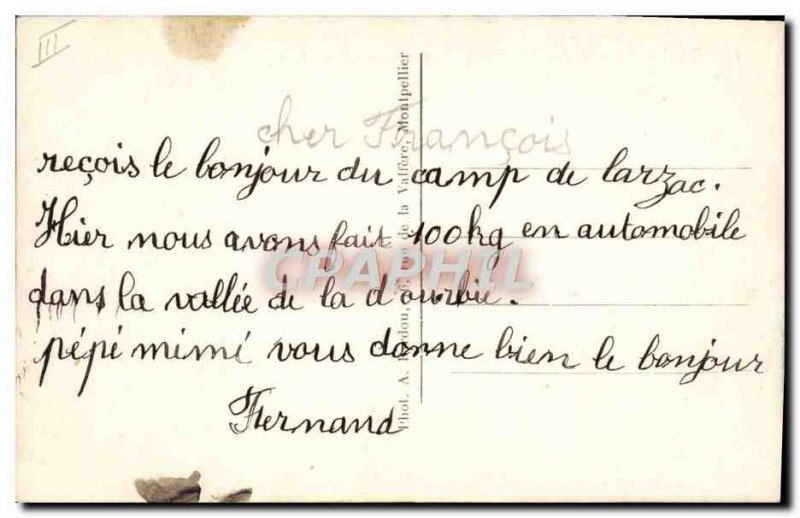 III
cher François
reçois le bonjour du camp de larzac.
Hier nous avons fait 100kg en automobile
dans la vallée de la d'ourbie.
pépé mimé vous donne bien le bonjour
Fernand
Phot. A. de la Valfère, Montpellier
CPAPHIL